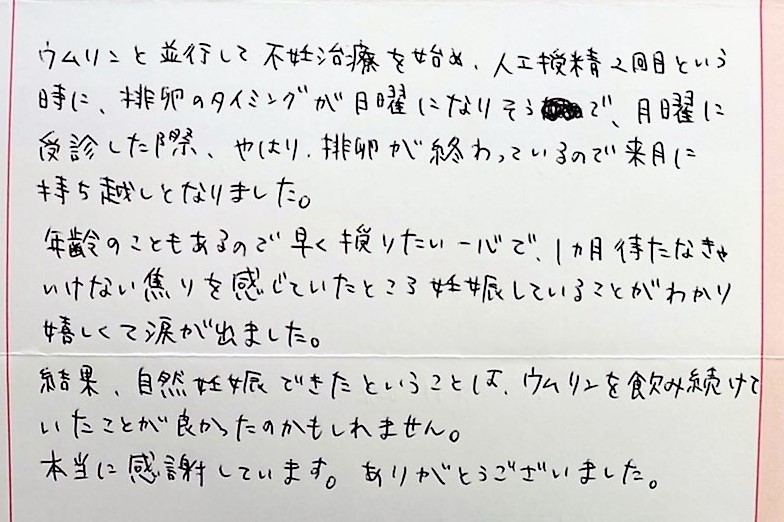 ウムリンと並行して不妊治療を始め、人工授精2回目という
時に、排卵のタイミングが月曜になりそうで、月曜に
受診した際、やはり、排卵が終わっているので来月に
持ち越しとなりました。
年齢のこともあるので早く授りたい一心で、1ヵ月待たなきゃ
いけない焦りを感じていたところ妊娠していることがわかり
嬉しくて涙が出ました。
結果、自然妊娠できたということは、ウムリンを飲み続けて
いたことが良かったのかもしれません。
本当に感謝しています。ありがとうございました。